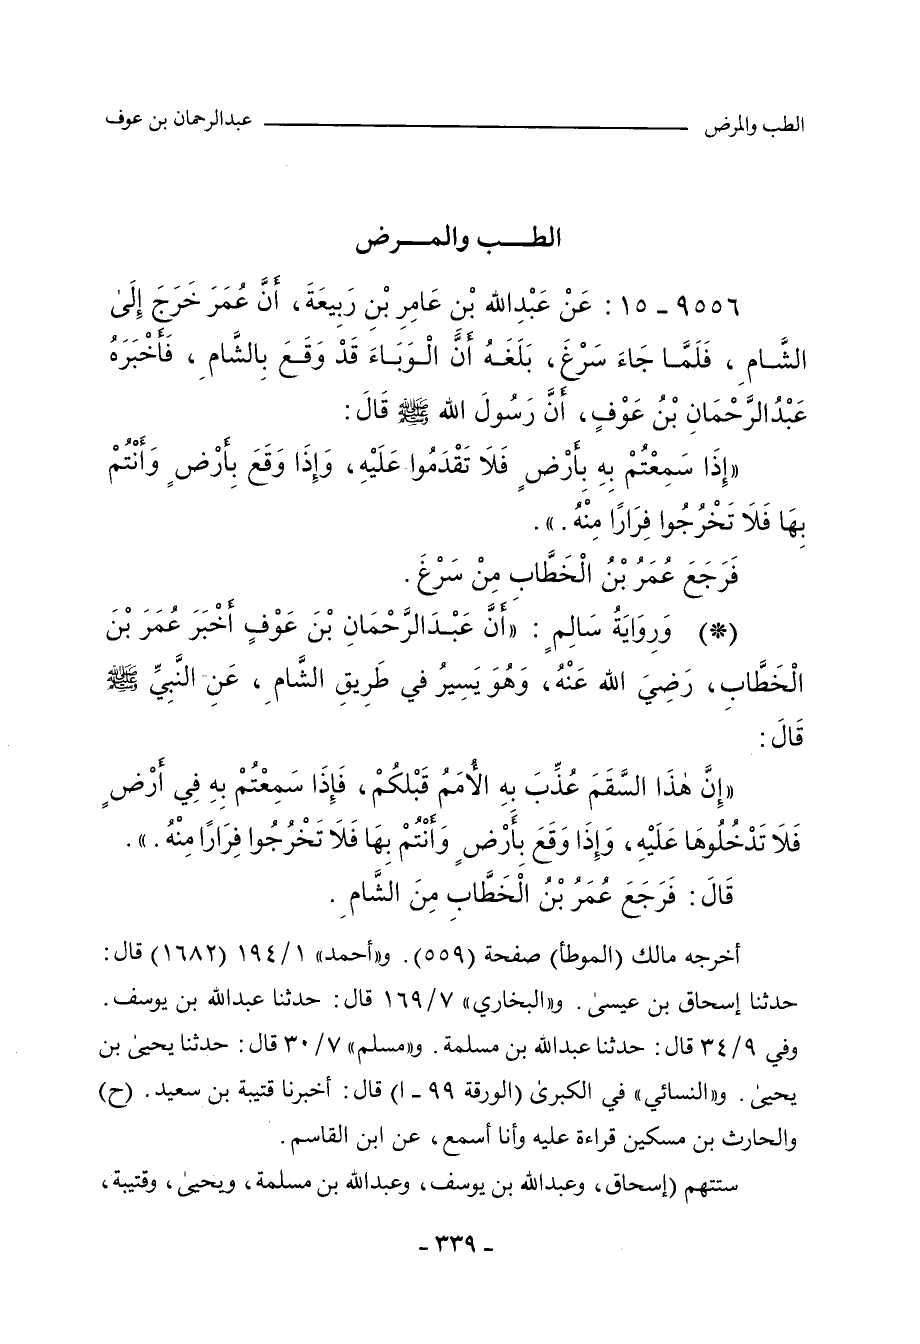 الطب والمرض ــــــــــــــــ عبدالرحمان بن عوف
الطــب والمــرض
٩٥٥٦ - ١٥ : عَنْ عَبْدِاللهِ بْنِ عَامِرِ بْنِ رَبِيعَةَ، أَنَّ عُمَرَ خَرَجَ إِلَىٰ
الشَّامِ ، فَلَمَّا جَاءَ سَرْغَ، بَلَغَهُ أَنَّ الْوَبَاءَ قَدْ وَقَعَ بِالشَّامِ ، فَأَخْبَرَهُ
عَبْدُالرَّحْمَانِ بْنُ عَوْفٍ، أَنَّ رَسُولَ اللهِ ﷺ قَالَ:
«إِذَا سَمِعْتُمْ بِهِ بِأَرْضٍ فَلَا تَقْدَمُوا عَلَيْهِ، وَإِذَا وَقَعَ بِأَرْضٍ وَأَنْتُمْ
بِهَا فَلَا تَخْرُجُوا فِرَارًا مِنْهُ.».
فَرَجَعَ عُمَرُ بْنُ الْخَطَّابِ مِنْ سَرْغَ .
(*) وَرِوَايَةُ سَالِمٍ : «أَنَّ عَبْدَالرَّحْمَانِ بْنَ عَوْفٍ أَخْبَرَ عُمَرَ بْنَ
الْخَطَّابِ، رَضِيَ اللهُ عَنْهُ، وَهُوَ يَسِيرُ فِي طَرِيقِ الشَّامِ ، عَنِ النَّبِيِّ ﷺ
قَالَ:
«إِنَّ هٰذَا السَّقَمَ عُذِّبَ بِهِ الأُمَمُ قَبْلَكُمْ، فَإِذَا سَمِعْتُمْ بِهِ فِي أَرْضٍ
فَلَا تَدْخُلُوهَا عَلَيْهِ، وَإِذَا وَقَعَ بِأَرْضٍ وَأَنْتُمْ بِهَا فَلَا تَخْرُجُوا فِرَارًا مِنْهُ.».
قَالَ: فَرَجَعَ عُمَرُ بْنُ الْخَطَّابِ مِنَ الشَّامِ .
أخرجه مالك (الموطأ) صفحة (٥٥٩). و«أحمد» ١/ ١٩٤ (١٦٨٢) قال:
حدثنا إسحاق بن عيسىٰ. و«البخاري» ٧/ ١٦٩ قال: حدثنا عبدالله بن يوسف.
وفي ٩/ ٣٤ قال: حدثنا عبدالله بن مسلمة. و«مسلم» ٧/ ٣٠ قال: حدثنا يحيىٰ بن
يحيىٰ. و«النسائي» في الكبرىٰ (الورقة ٩٩ - ا) قال: أخبرنا قتيبة بن سعيد. (ح)
والحارث بن مسكين قراءة عليه وأنا أسمع، عن ابن القاسم.
ستتهم (إسحاق، وعبدالله بن يوسف، وعبدالله بن مسلمة، ويحيىٰ، وقتيبة،
- ٣٣٩ -